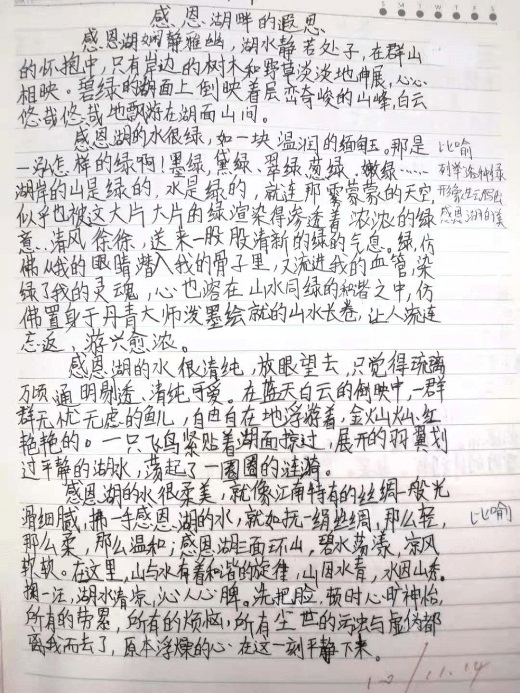 感恩湖畔的遐思
感恩湖娴静雅幽，湖水静若处子，在群山
的怀抱中，只有岸边的树木和野草淡淡地伸展，心心
相映。碧绿的湖面上倒映着层峦奇峻的山峰，白云
悠哉悠哉地飘游在湖面山间。
感恩湖的水很绿，如一块温润的缅玉。那是 比喻
一泓怎样的绿啊！墨绿，黛绿、翠绿葱绿、嫩绿…… 列举各种绿
湖岸的山是绿的，水是绿的，就连那雾蒙蒙的天空， 形象生动写出
似乎也被这大片大片的绿渲染得渗透着浓浓的绿 感恩湖的美
意。清风徐徐，送来一股股清新的绿的气息。绿，仿
佛从我的眼睛潜入我的骨子里，又流进我的血管，染
绿了我的灵魂，心也溶在山水同绿的和谐之中，仿
佛置身于丹青大师泼墨绘就的山水长卷，让人流连
忘返，游兴愈浓。
感恩湖的水很清纯，放眼望去，只觉得琉璃
万顷通明剔透、清纯可爱。在蓝天白云的倒映中，一群
群无忧无虑的鱼儿，自由自在地浮游着，金灿灿、红
艳艳的。一只飞鸟紧贴着湖面掠过，展开的羽翼划
过平静的湖水，荡起了一圈圈的涟漪。
感恩湖的水很柔美，就像江南特有的丝绸一般光
滑细腻，拂一手感恩湖的水，就如抚一绢丝绸，那么轻， 比喻
那么柔，那么温和；感恩湖三面环山，碧水荡漾，凉风
软软。在这里，山与水有着和谐的旋律，山因水青，水因山秀。
掬一汪，湖水清凉，沁人心脾。洗把脸，顿时心旷神怡，
所有的劳累，所有的烦恼，所有尘世的污浊与虚伪都
离我而去了，原本浮燥的心在这一刻平静下来。
12/11.14